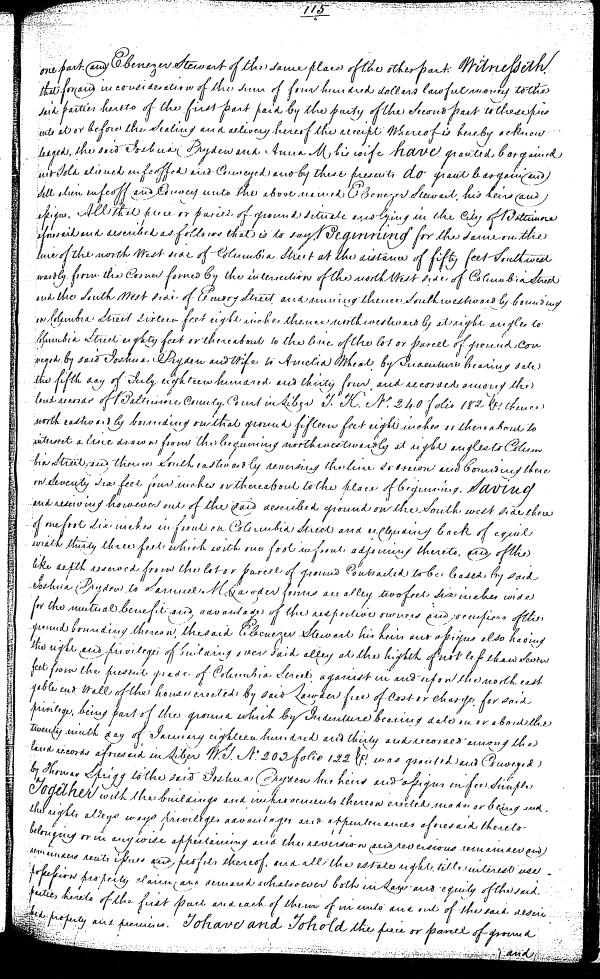 115
one part and Ebenezer Stewart of the same place of the other part. Witnesseth
that for and in consideration of the sum of four hundred dollars lawful money to the
said parties hereto of the first part paid by the party of the Second part to these pres
ents at or before the Sealing and delivery hereof the receipt Whereof is hereby acknow
ledged, the said Joshua Dryden and Anna M, his wife have granted bargained
and Sold aliened enfeoffed and Conveyed and by these presents do grant bargain and
Sell alien enfeoff and Convey unto the above named Ebenezer Stewart, his heirs and
assigns, All that piece or parcel of ground situate and lying in the City of Baltimore
aforesaid and described as follows that is to say, Beginning for the same on the
line of the north West side of Columbia Street at the distance of fifty feet Southwest
wardly from the Corner formed by the intersection of the north West side of Columbia Street
and the South West side of Emory Street, and running thence Southwestwardly bounding
on Columbia Street Sixteen feet eight inches thence northwestwardly at right angles to
Columbia Street eighty feet or thereabout to the line of the lot or parcel of ground con
veyed by said Joshua Dryden and Wife to Amelia Wheat, by Indenture bearing date
the fifth day of July eighteen hundred and thirty four, and recorded among the
land records of Baltimore County Court in Liber T. K. No. 240 folio 182 &c; thence
north eastwardly bounding on that ground fifteen feet eight inches or thereabout to
intersect a line drawn from the beginning northwestwardly at right angles to Colum
bia Street, and thence South eastwardly reversing the line so drawn and bounding there
on Seventy Six feet four inches or thereabout to the place of beginning. Saving
and reserving however out of the said described ground on the South west side there
of one foot six inches in front on Columbia Street and extending back of equal
width thirty three feet which with one foot in front adjoining thereto, and of the
like depth reserved from the lot or parcel of ground Contracted to be leased by said
Joshua Dryden to Samuel M. Lawder forms an alley two feet six inches wide
for the mutual benefit and advantage of the respective owners and occupiers of the
ground bounding thereon, the said Ebenezer Stewart his heirs and assigns also having
the right and privilege of building over said alley at the highth of not less than Seven
feet from the present grade of Columbia Street, against in and upon the north east
gable end Wall of the house erected by said Lawder free of Cost or charge, for said
privilege, being part of the ground which by Indenture bearing date on or about the
twenty ninth day of January eighteen hundred and thirty and recorded among the
land records aforesaid in Liber W. G. No 202 folio 122 &c was granted and Conveyed
by Thomas Sprigg to the said Joshua Dryden his heirs and assigns in fee simple
Together with the buildings and improvements thereon erected, made or being and
the rights alleys ways privileges advantages and appurtenances aforesaid thereto
belonging or in anywise appertaining and the reversion and reversions remainder and
remainders rents issues and profits thereof, and all the estate right title interest use
possession property claim and demand whatsoever both in Law and equity of the said
parties hereto of the first part and each of them of in unto and out of the said descri
bed property and premises. To have and To hold the piece or parcel of ground
and